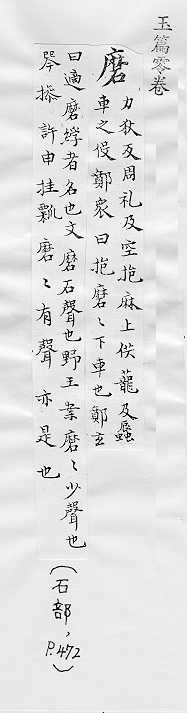 玉篇零卷
磨 力狄反周礼及空抱麻上俟蘢及蠱
車之役鄭衆曰抱磨〻下車也鄭玄
曰適磨綍者名也文磨石聲也野王案磨〻少聲也
琴操許申挂瓢磨〻有聲亦是也
(石部,P.472)